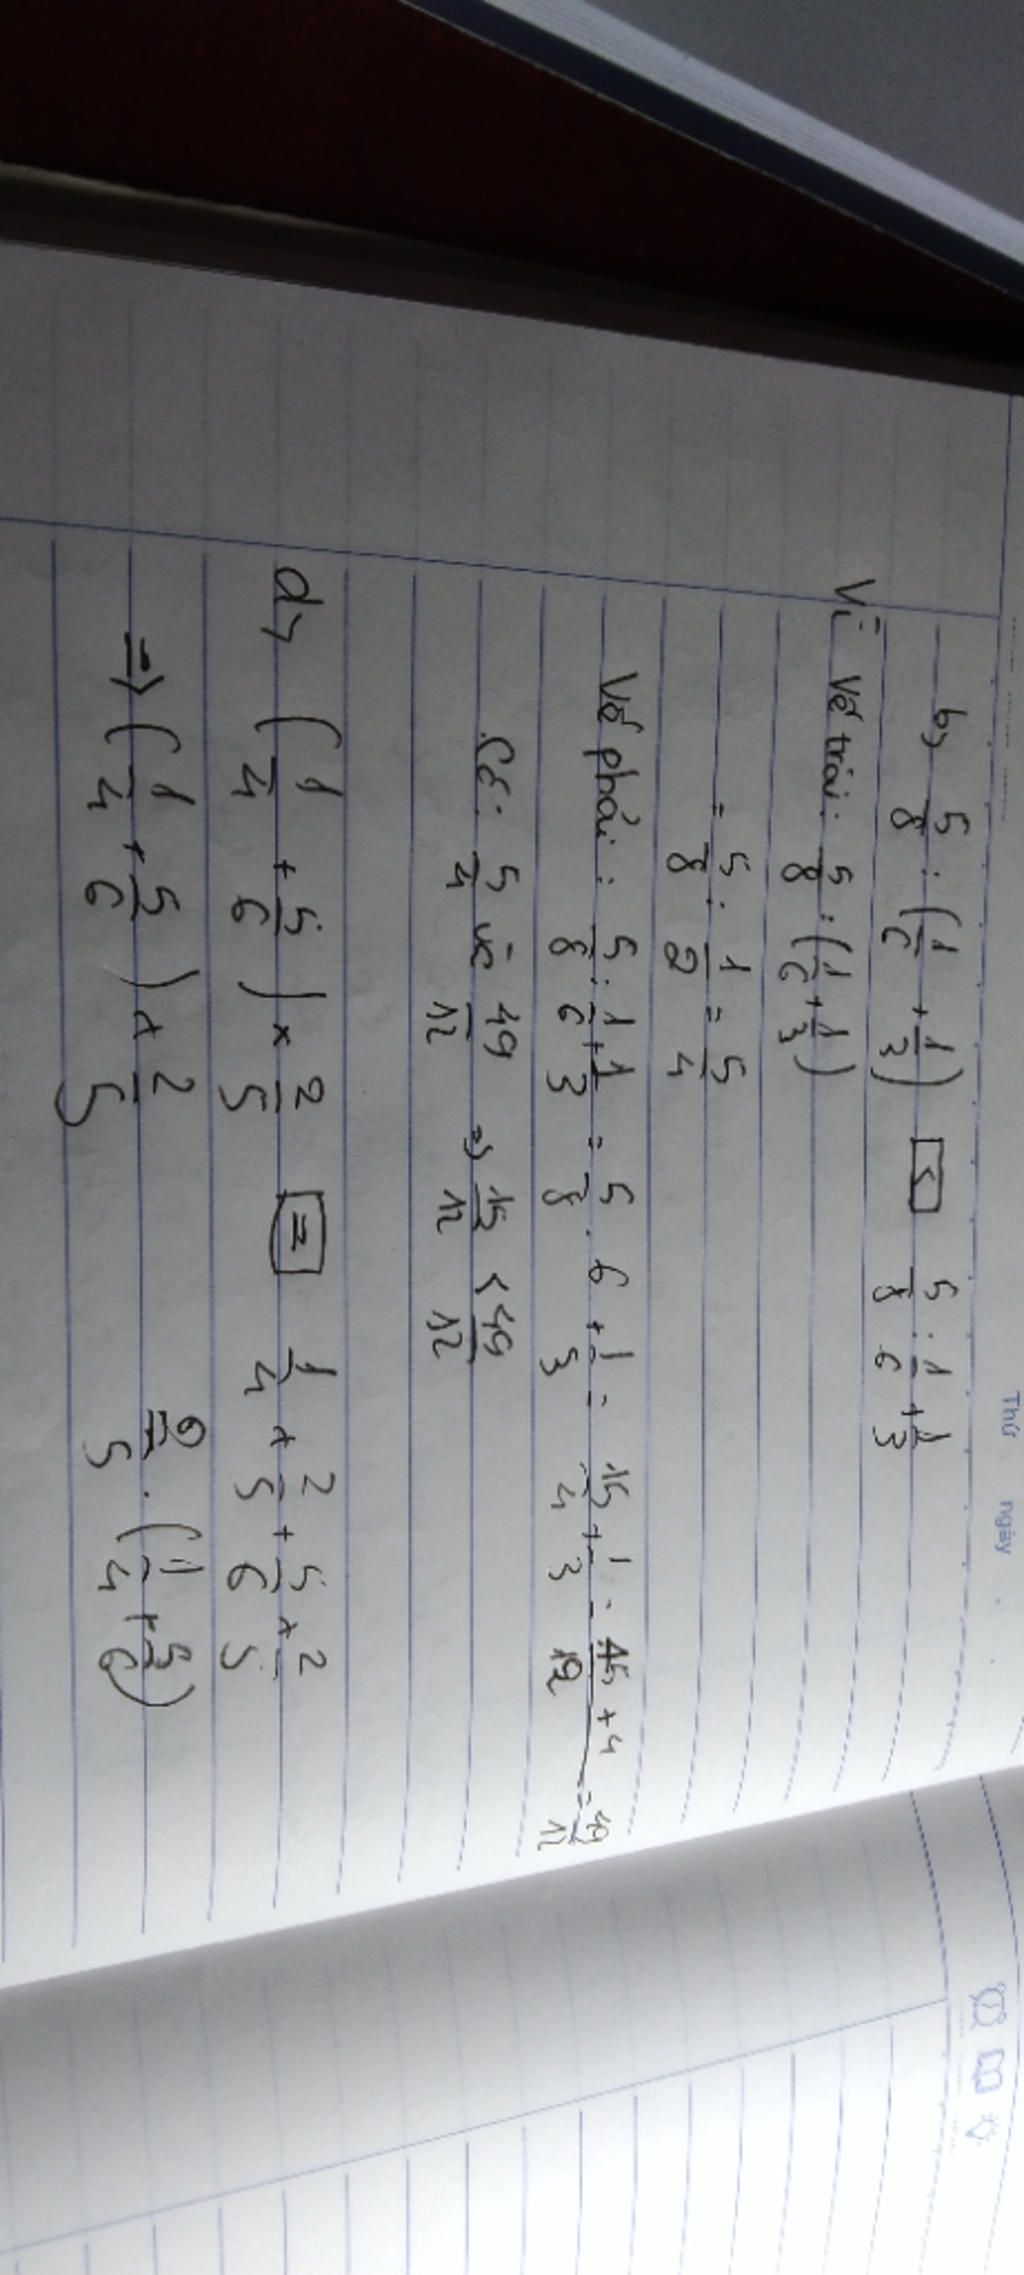 Thứ ngày
b, 5/8 : (1/6 + 1/3) < 5/8 : 1/6 + 1/3
Vì: Vế trái: 5/8 : (1/6 + 1/3)
= 5/8 : 1/2 = 5/4
Vế phải: 5/8 : 1/6 + 1/3 = 5/8 . 6 + 1/3 = 15/4 + 1/3 = 45 + 4/12 = 49/12
Có: 5/4 và 49/12 => 15/12 < 49/12
d, (1/4 + 5/6) x 2/5 = 1/4 x 2/5 + 5/6 x 2/5
=> (1/4 + 5/6) x 2/5 2/5 . (1/4 + 5/6)